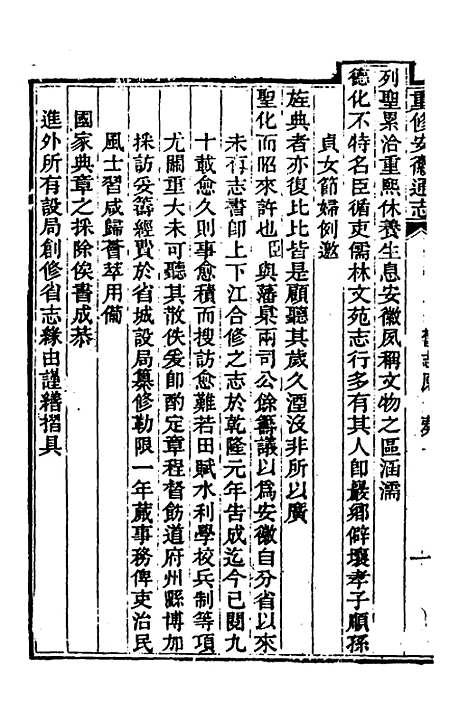 重修安徽通志
列聖累洽重熙休養生息安徽夙稱文物之區涵濡
德化不特名臣循吏儒林文苑志行多有其人即最鄉僻壤孝子順孫
貞女節婦例邀
旌典者亦復比比皆是顧聽其歲久湮没非所以廣
聖化而昭來許也臣與藩臬兩司公餘籌議以為安徽自分省以來
未有志書即上下江合修之志於乾隆元年告成迄今已閱九
十載愈久則事愈積而搜訪愈難若田賦水利學校兵制等項
尤關重大未可聽其散佚爰即酌定章程督飭道府州縣博加
採訪妥籌經費於省城設局纂修勒限一年蕆事務俾吏治民
風士習咸歸薈萃用備
國家典章之採除俟書成恭
進外所有設局創修省志緣由謹繕摺具